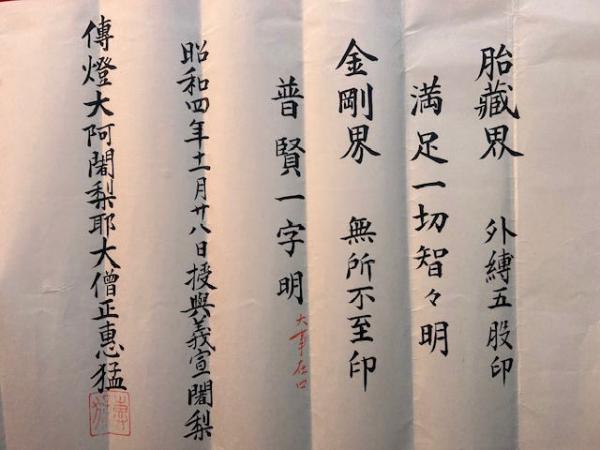 胎藏界　外縛五股印
満足一切智々明
金剛界　無所不至印
普賢一字明 大事在口
昭和四年十一月廿八日授與義宣闍梨
傳燈大阿闍梨耶大僧正惠猛